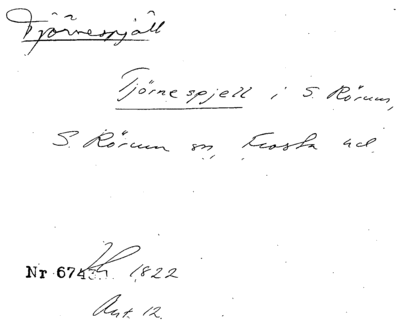 Tjörnespjäll
Tjörnespjell i S. Rörum,
S. Rörum sn, Frosta hd.
Nr 674
1822
Ant. 12.